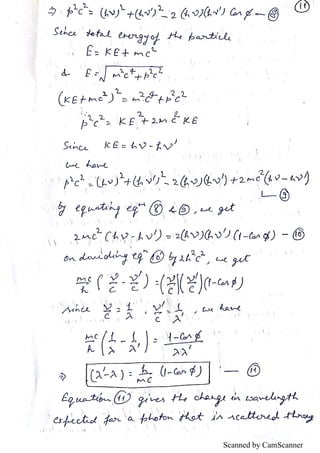 (11)
⇒ p²c² = (hν)² + (hν')² - 2(hν)(hν') Cos φ — (8)
Since total energy of the particle
E = KE + mc²
& E = √m²c⁴ + p²c²
(KE + mc²)² = m²c⁴ + p²c²
p²c² = KE² + 2mc² KE
Since KE = hν - hν'
we have
p²c² = (hν)² + (hν')² - 2(hν)(hν') + 2mc²(hν - hν')
— (9)
by equating eqⁿ (8) & (9), we get
2mc² (hν - hν') = 2(hν)(hν') (1 - Cos φ) — (10)
on dividing eqⁿ (10) by 2h²c², we get
mc/h (ν/c - ν'/c) = (ν/c)(ν'/c)(1 - Cos φ)
since ν/c = 1/λ, ν'/c = 1/λ', we have
mc/h (1/λ - 1/λ') = 1 - Cos φ/λλ'
⇒ (λ' - λ) = h/mc (1 - Cos φ) — (11)
Equation (11) gives the change in wavelength
expected for a photon that is scattered throug
Scanned by CamScanner